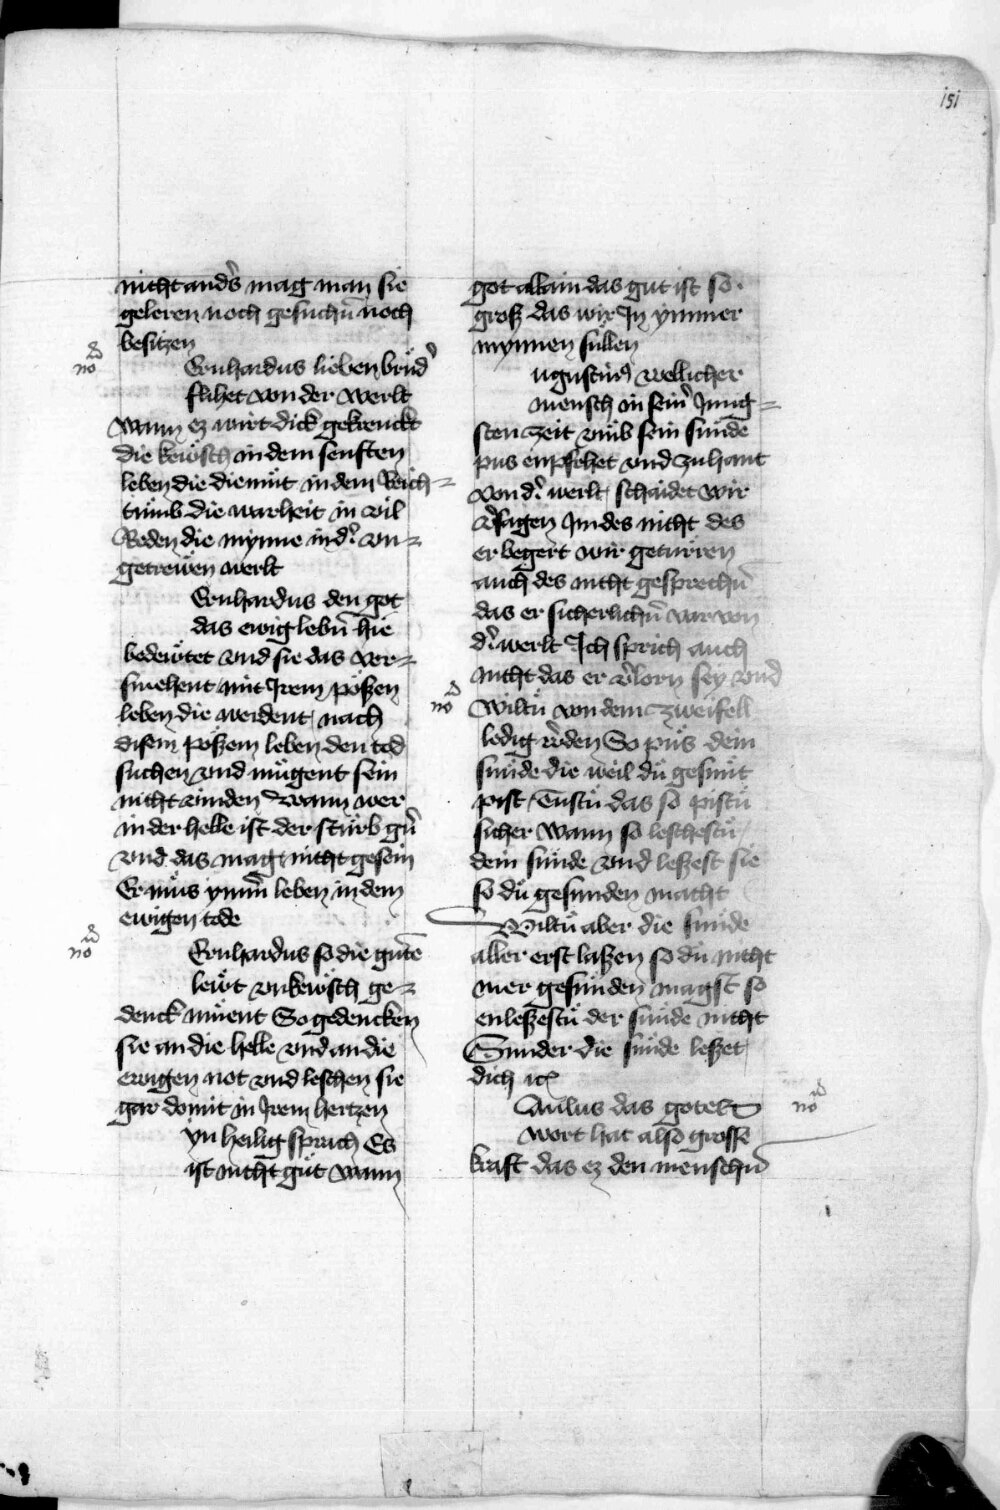 151
nicht anders mag man sie
geleren noch gesuchn̄ noch
besitzen
Ernhardus lieben brüd'
flihet von der werlt
wann ez wirt dick gekrenckt
die kewsch in dem senften
leben die diemüt in dem Reich=
tumb die warheit in vil
Reden die mynne in d' vn=
getrewen werlt
Ernhardus den got
das ewig lebn̄ hie
bedewtet vnd sie das ver=
smehent mit Irem pößen
leben die werdent nach
disem pößem leben den tod
suchen vnd mügent sein
nicht vinden wann wer
in der helle ist der stürb gn̄
vnd das mag nicht gesein
Er müs ymm̄ leben in dem
ewigen tode
Ernhardus so die guten
lewt vnkewsch ge=
denck müent So gedencken
sie an die helle vnd an die
ewigen not vnd leschen sie
gar domit in Irem hertzen
yn heilig sprich Es
ist nicht güt wann
got allain das gut ist so
groß das wir In ymmer
mynnen süllen
ugustin9 wellicher
mensch in sein' Jung=
sten zeit vmb sein sunde
pus enpfehet vnd zuhant
von d' werlt schaidet wir
v'sagen Im des nicht des
er begert wir geturren
auch des nicht gesprechn̄
das er sicherlichn̄ var von
d' werlt Ich sprich auch
nicht das er v'lorn sey vnd
Wiltu von dem zweifell
ledig w'den So püs dein
sünde die weil du gesunt
pist Tustu das so pistu
sicher wann so leschestu
dein sünde vnd leßest sie
so du gesunden macht
Wiltu aber die sunde
aller erst laßen so du nicht
mer gesunden magst so
enleßestu der sunde nicht
Sunder die sunde leßet
dich ꝛc
Aulus das gotes
wort hat also grosse
kraft das ez den menschn̄
no
no
no
no